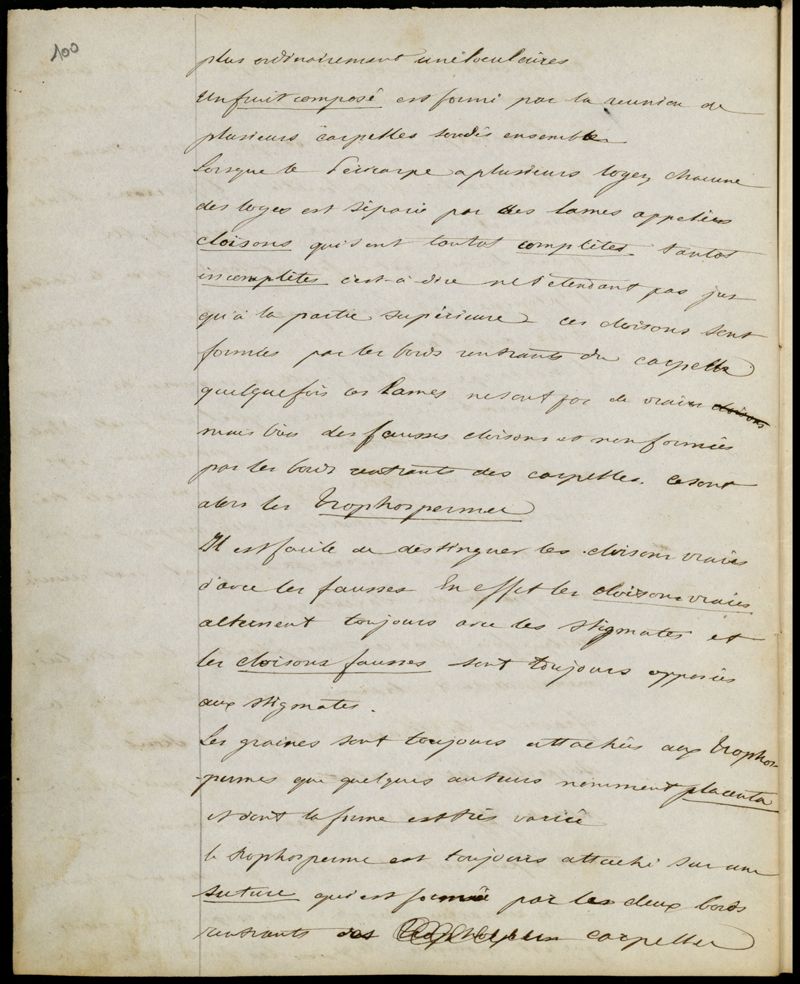 100
plus ordinairement uniloculaires
Un fruit composé est formé par la reunion de
plusieurs carpelles soudés ensemble
Lorsque le Péricarpe a plusieurs loges, chacune
des loges est séparée par des lames appelées
cloisons qui sont tantot complètes. tantot
incomplètes c'est-à-dire ne s'etendant pas jus
qu'à la partie supérieure ces cloisons sont
formées par les bords rentrants du carpelle
quelquefois ces lames ne sont pas de vraies cloisons
mais bien des fausses cloisons et non formées
par les bords rentrants des carpelles. ce sont
alors les trophospermes
Il est facile de distinguer les cloisons vraies
d'avec les fausses En effet les cloisons vraies
alternent toujours avec les stigmates et
les cloisons fausses sont toujours opposées
aux stigmates.
Les graines sont toujours attachées aux trophos-
-permes que quelques auteurs nomment placenta
et dont la forme est très variée
le trophosperme est toujours attaché sur une
suture qui est formée par les deux bords
rentrants des carpelles